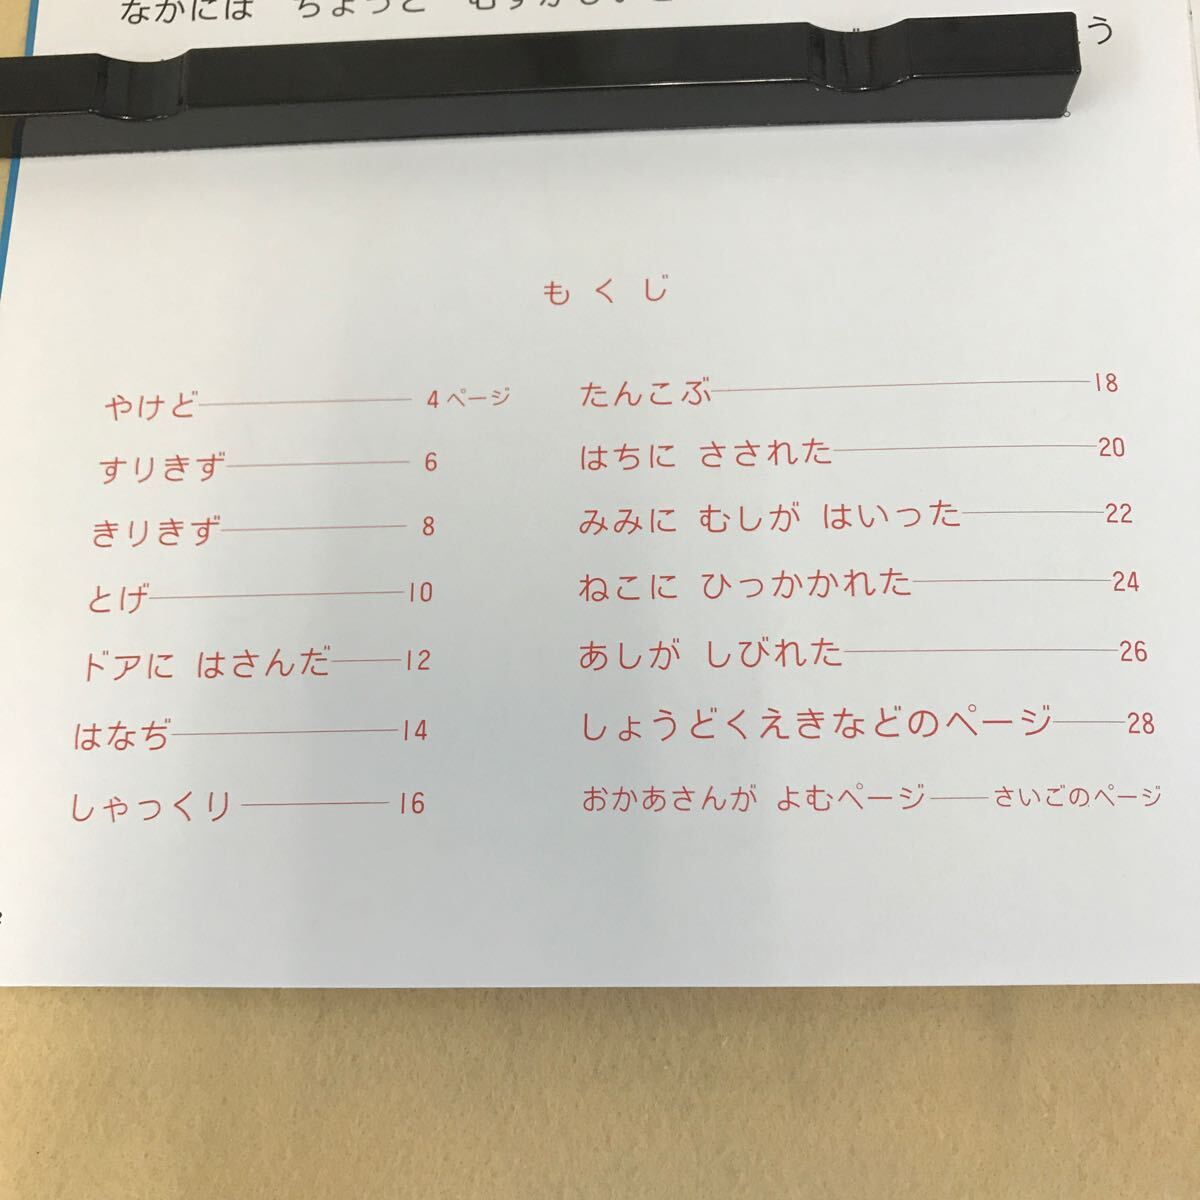 なかには ちょっと
う
もくじ
やけど 4ページ
すりきず 6
きりきず 8
とげ 10
ドアに はさんだ 12
はなぢ 14
しゃっくり 16
たんこぶ 18
はちに さされた 20
みみに むしが はいった 22
ねこに ひっかかれた 24
あしが しびれた 26
しょうどくえきなどのページ 28
おかあさんが よむページ さいごのページ